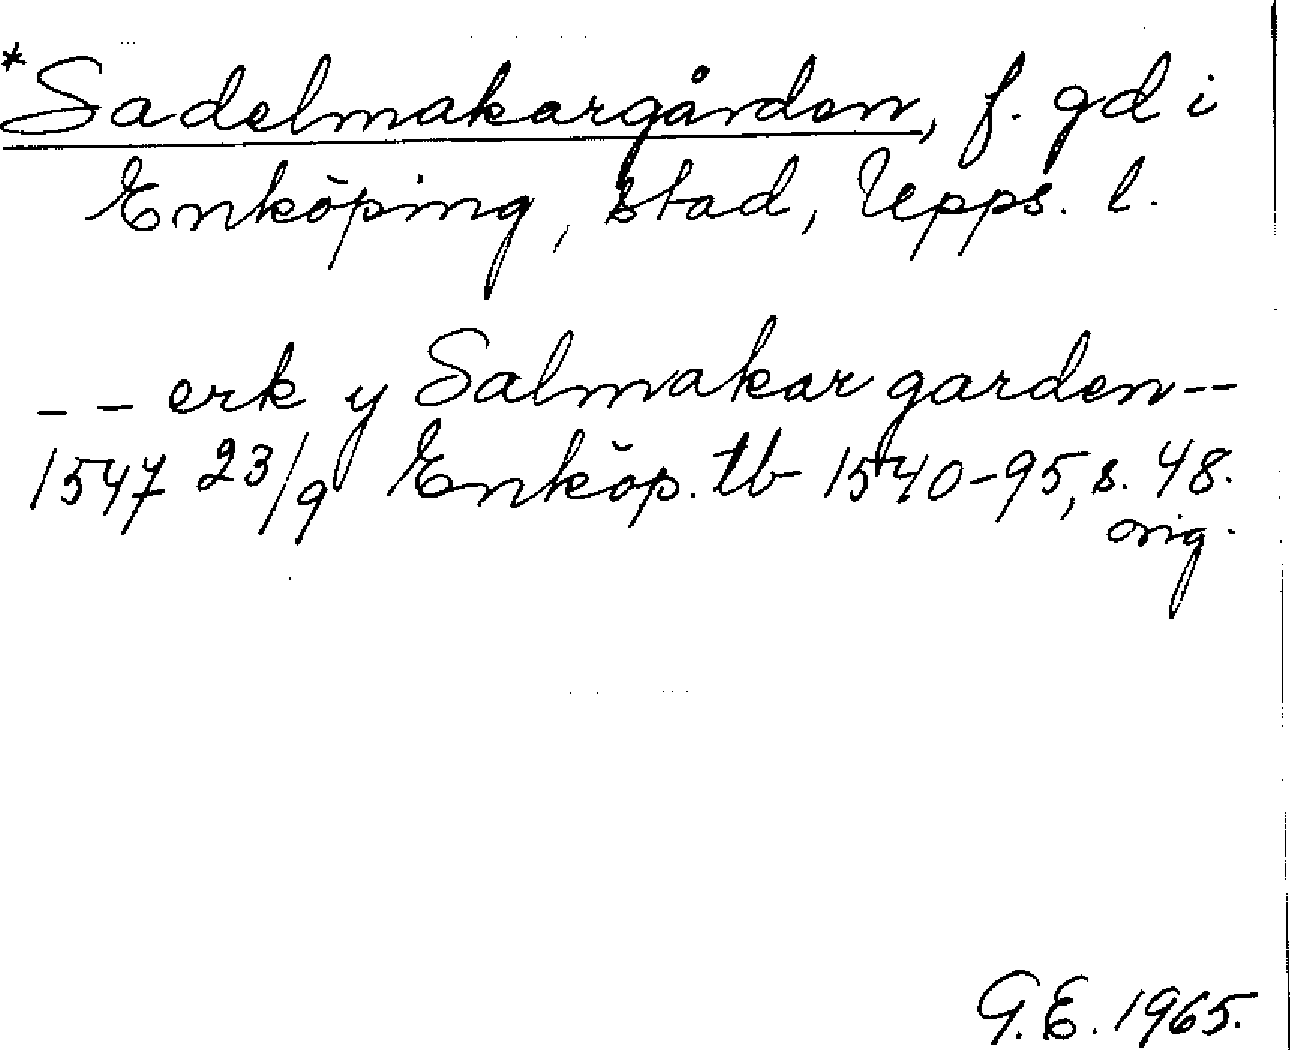 *Sadelmakargården, f. gd i
Enköping, stad, Upps. l.
-- erk y Salmakar garden --
1547 23/9 Enköp. tb 1540-95, s. 48.
orig.
G.E. 1965.